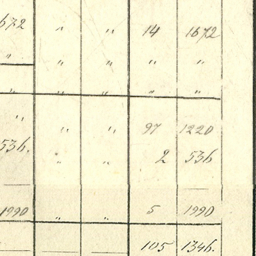 672 " " 14 1672
" " " " "
" " " " "
" " " 97 1220
536. " " 2 536
1990 " " 5 1990
105 1346.